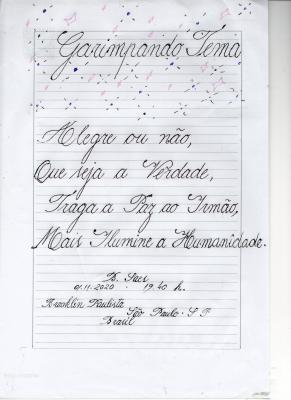 Garimpando Tema
Alegre ou não,
Que seja a Verdade,
Traga a Paz ao Irmão,
Mais Ilumine a Humanidade.
01.11.2020 19:40 h.
Brooklin Paulista
São Paulo - S P
Brasil